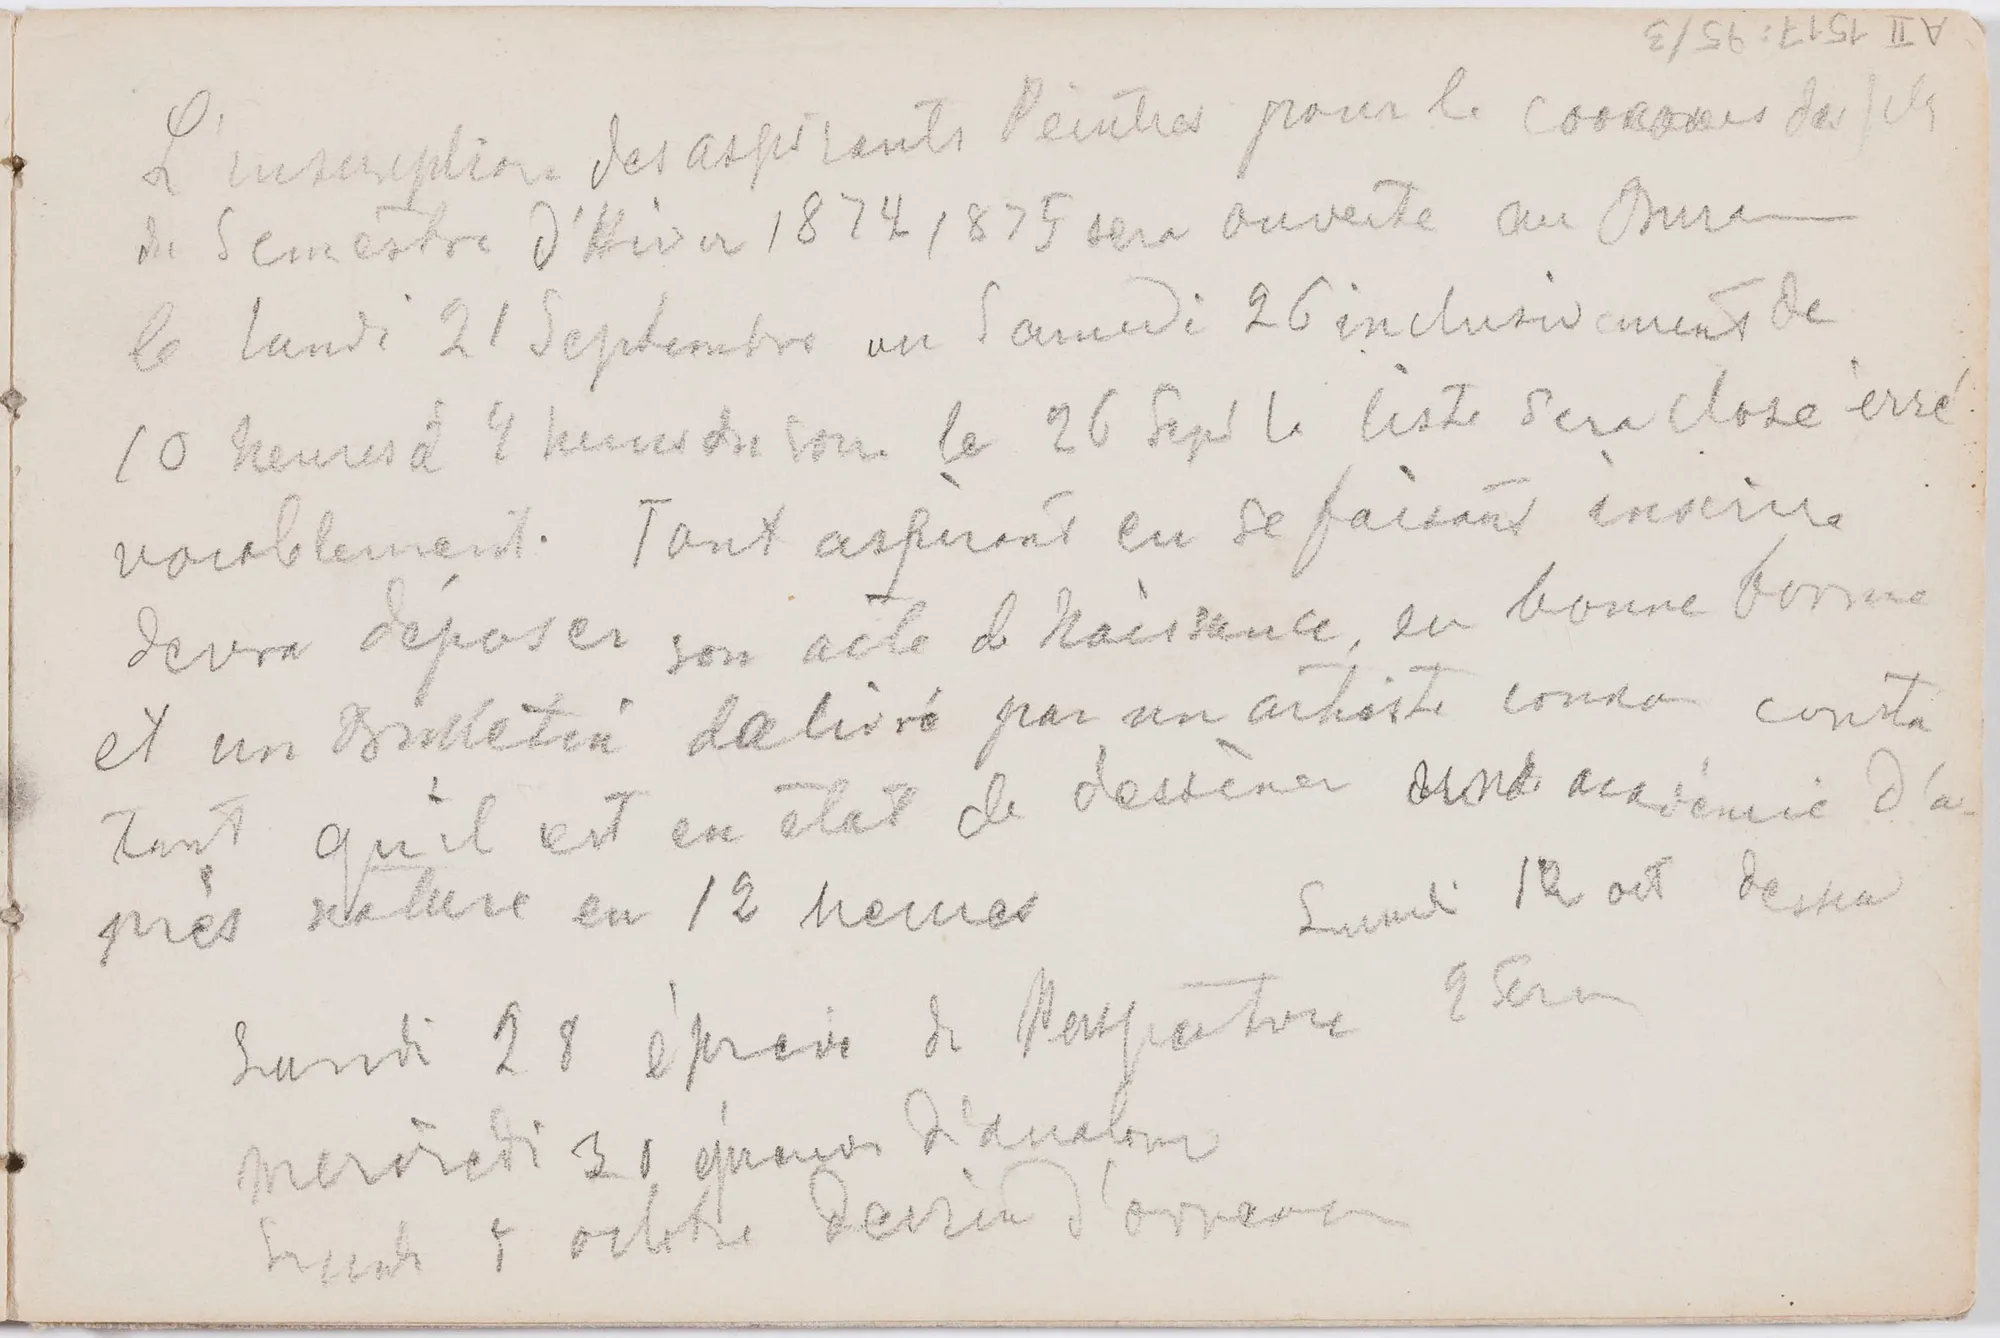 A II 1517:95/3
L'inscription des aspirants Peintres pour le concours des
du Semestre d'Hiver 1874 1875 sera ouverte au Burea
le lundi 21 Septembre au Samedi 26 inclusivement de
10 heures à 4 heures du soir le 26 Sept la liste sera close irré
vocablement. Tout aspirant en se faisant inscrire
devra déposer son acte de Naissance, en bonne forme
et un Bulletin delivré par un artiste connu consta
tant qu'il est en état de dessiner une académie d'a
près nature en 12 heures Lundi 12 oct dessin
Lundi 28 épreuve de Perspective
mercredi 30 épreuve d'anatom
Lundi 5 octobre dessin d'ornem